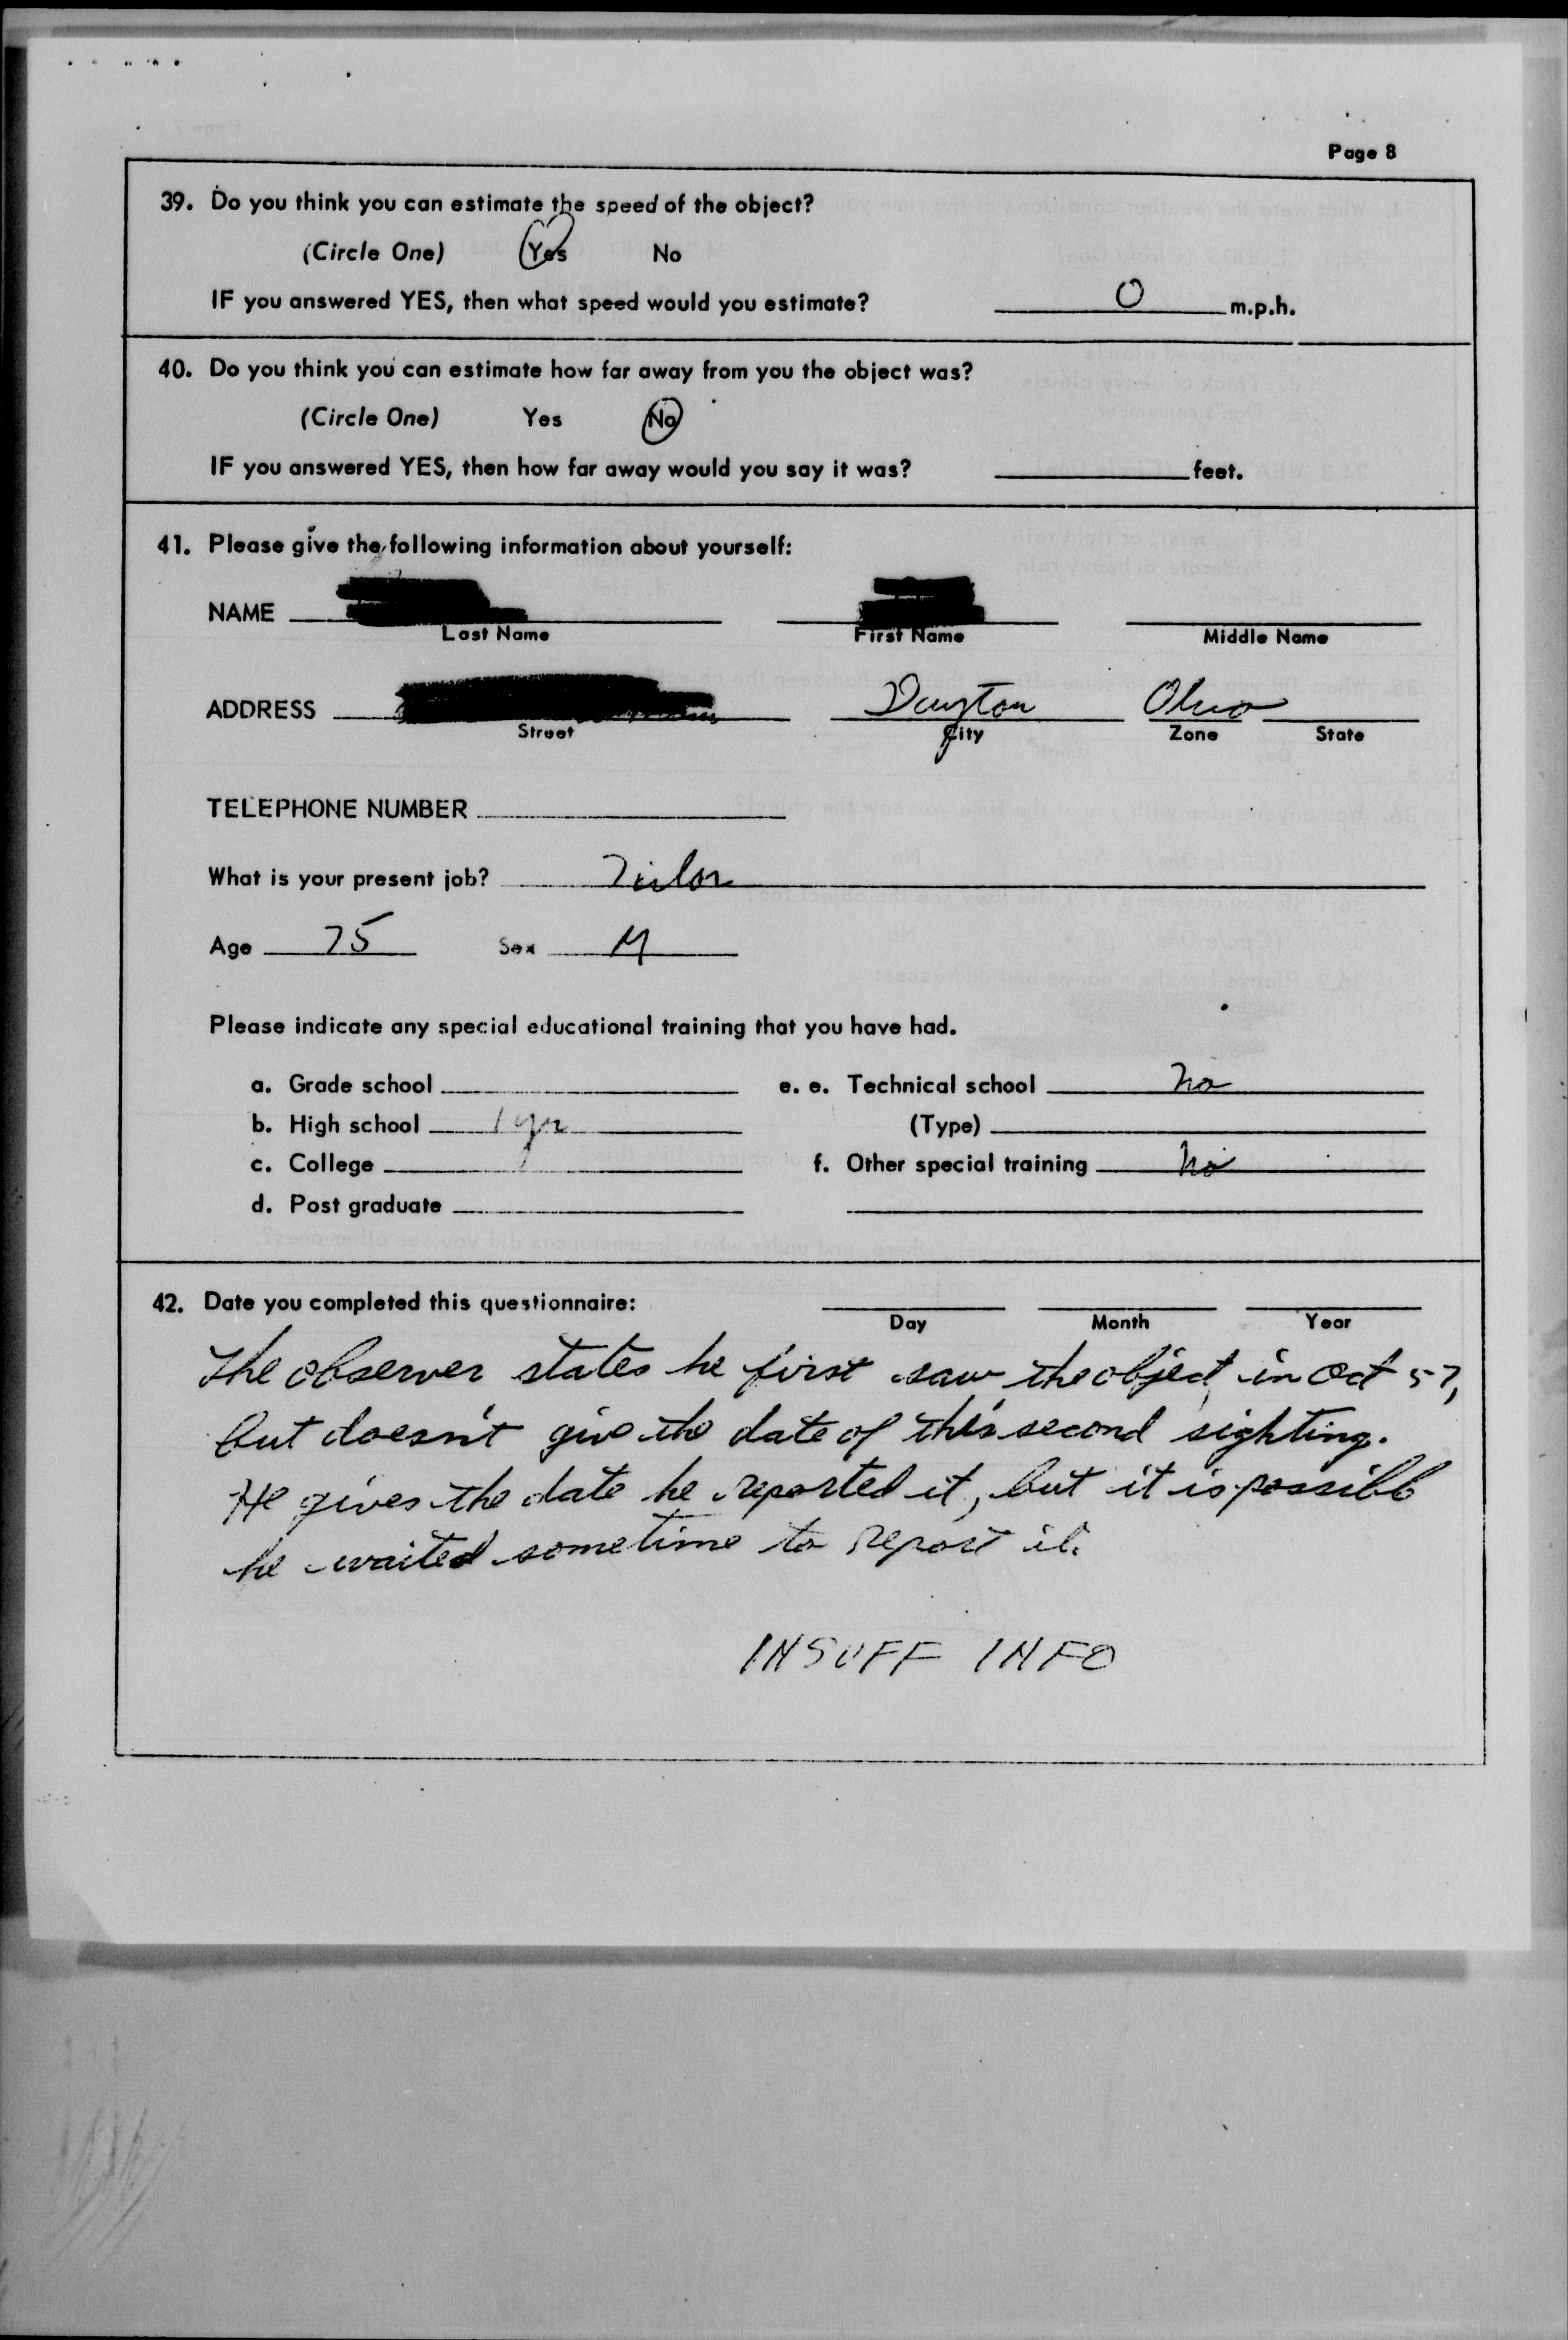 Page 8
39. Do you think you can estimate the speed of the object?
(Circle One) Yes No
IF you answered YES, then what speed would you estimate? 0 m.p.h.
40. Do you think you can estimate how far away from you the object was?
(Circle One) Yes No
IF you answered YES, then how far away would you say it was? feet.
41. Please give the following information about yourself:
NAME
Last Name First Name Middle Name
ADDRESS Dayton Ohio
Street City Zone State
TELEPHONE NUMBER
What is your present job?
Age 75 Sex M
Please indicate any special educational training that you have had.
a. Grade school e. e. Technical school no
b. High school 1 yr (Type)
c. College f. Other special training no
d. Post graduate
42. Date you completed this questionnaire:
Day Month Year
The observer states he first saw the object in Oct 57,
but doesn't give the date of this second sighting.
He gives the date he reported it, but it is possible
he waited sometime to report it.
INSUFF INFO